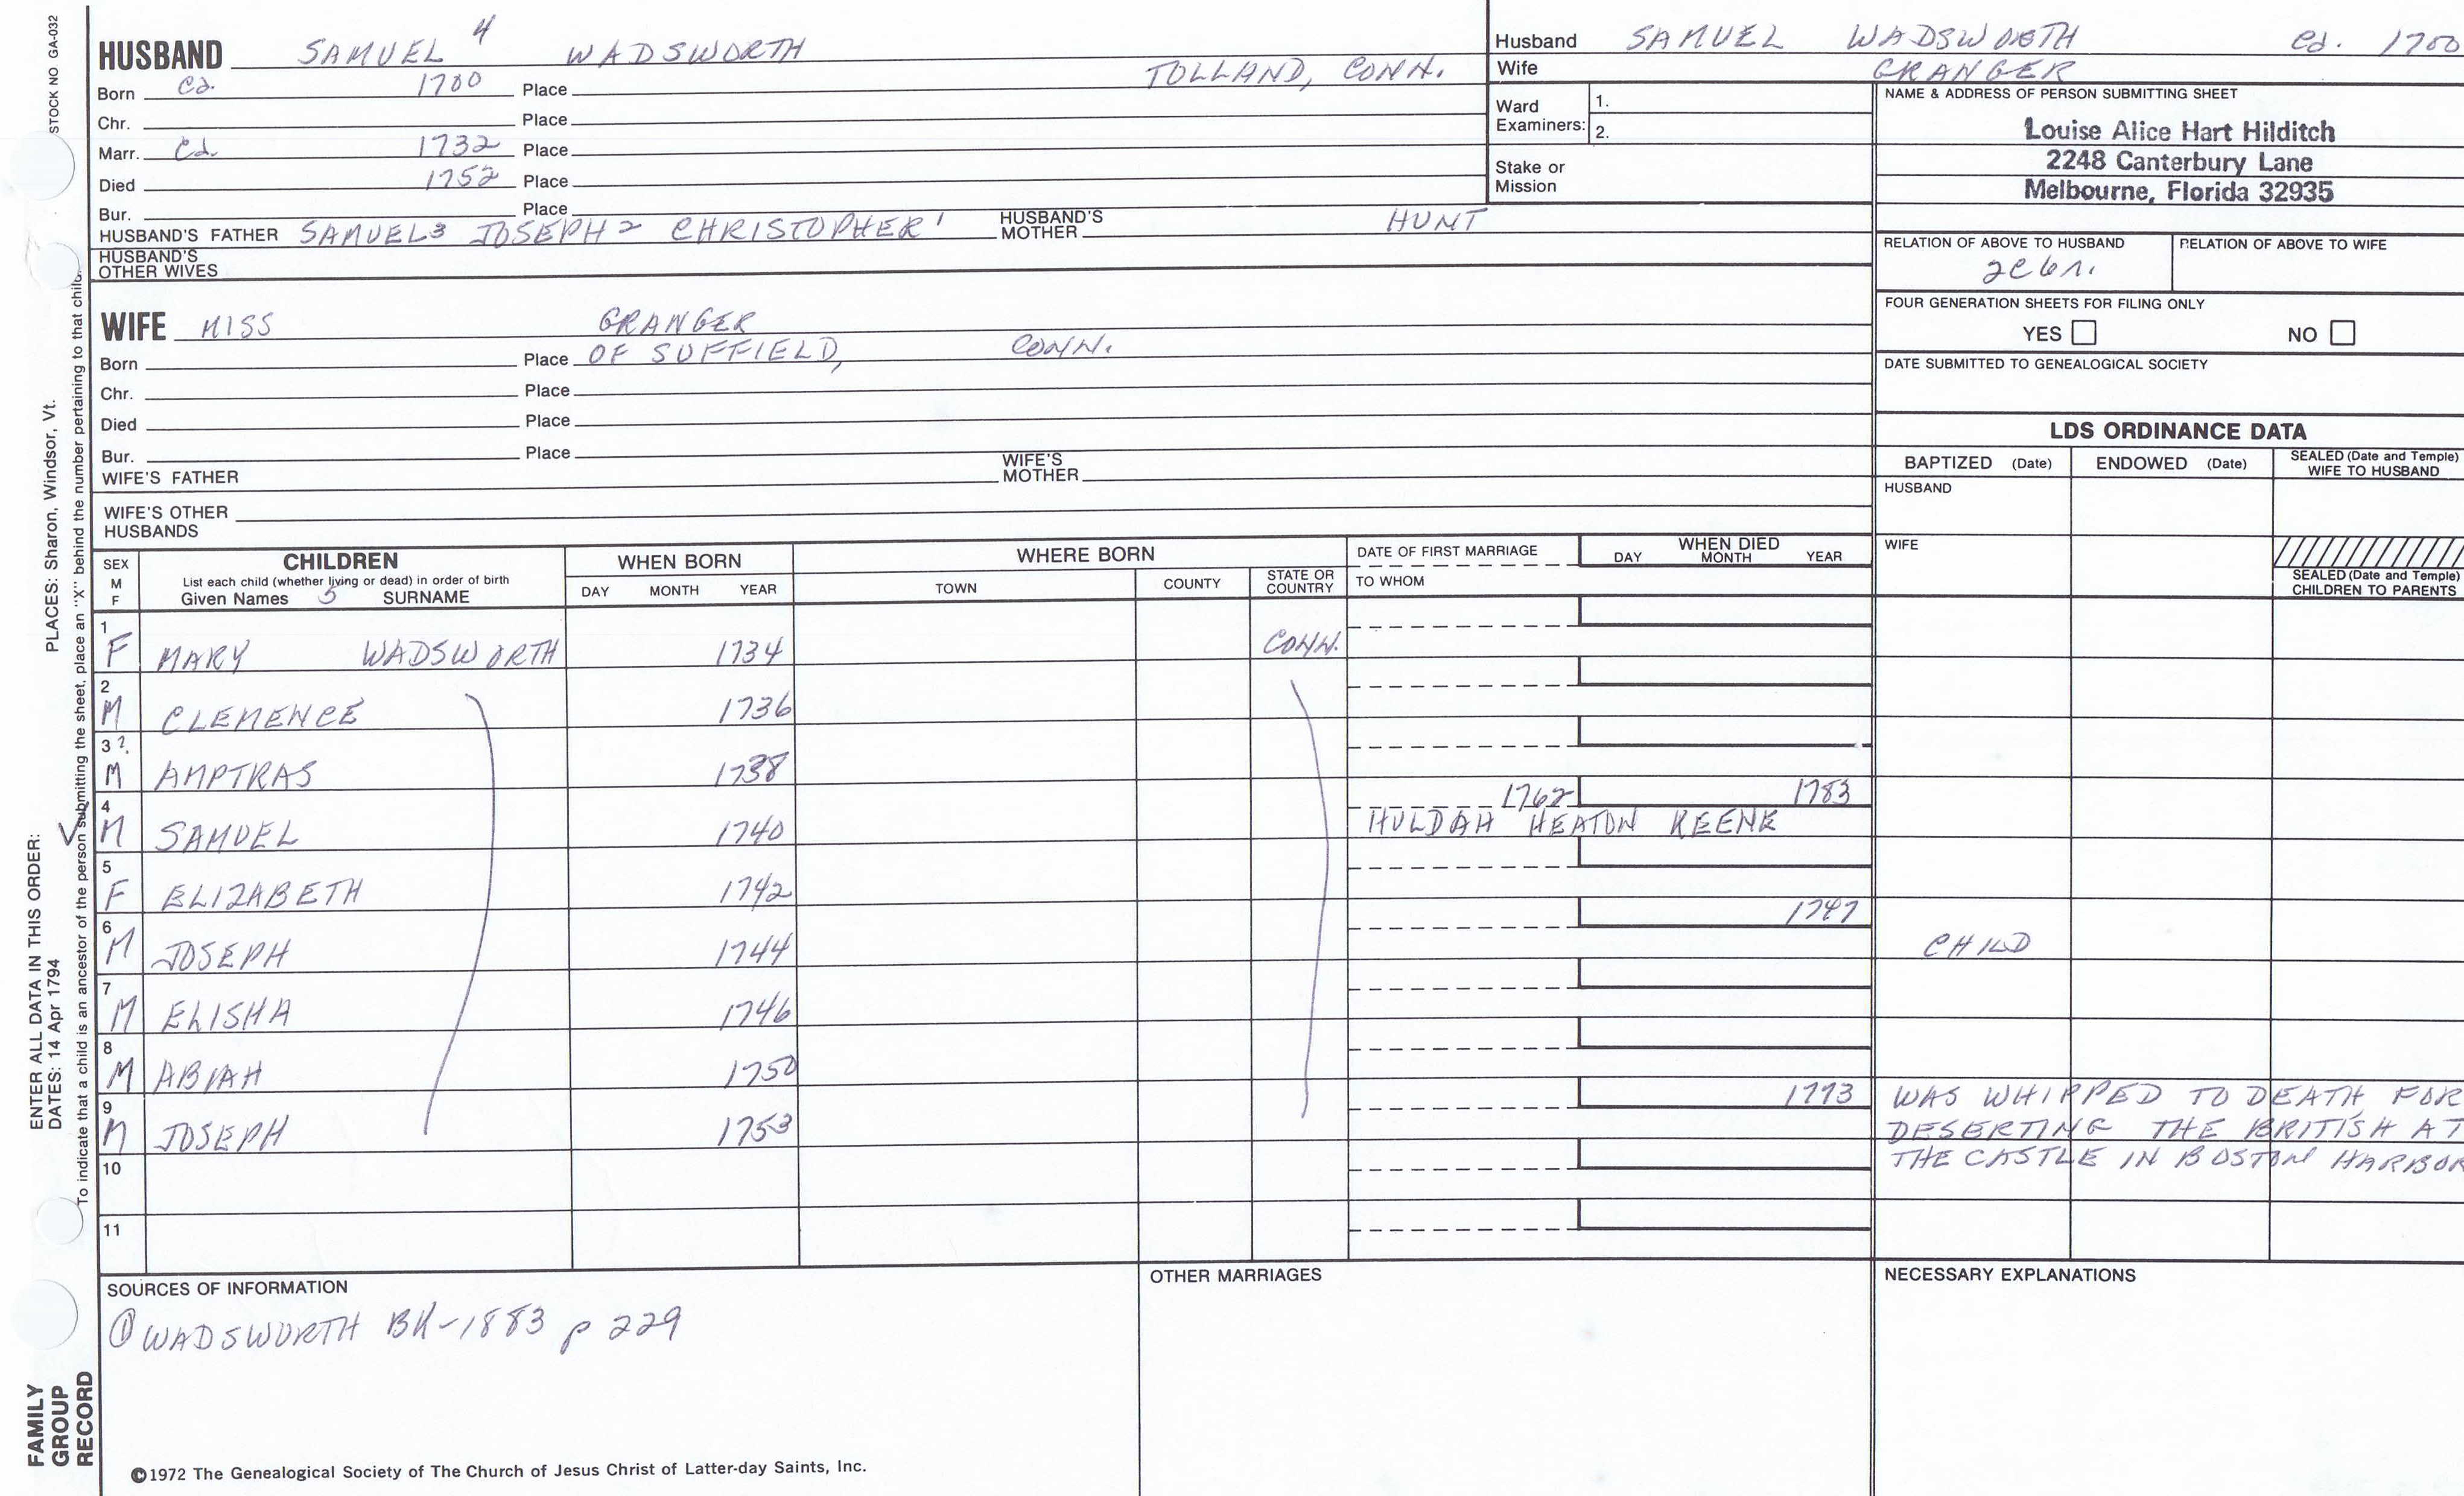 STOCK NO GA-032
HUSBAND SAMUEL 4 WADSWORTH
Born Ca. 1700 Place TOLLAND, CONN.
Chr. Place
Marr. Ca. 1732 Place
Died 1752 Place
Bur. Place
HUSBAND'S FATHER SAMUEL 3 JOSEPH 2 CHRISTOPHER 1 HUSBAND'S MOTHER HUNT
HUSBAND'S OTHER WIVES
WIFE MISS GRANGER
Born Place OF SUFFIELD, CONN.
Chr. Place
Died Place
Bur. Place
WIFE'S FATHER WIFE'S MOTHER
WIFE'S OTHER HUSBANDS
Husband SAMUEL WADSWORTH Ca. 1700
Wife GRANGER
Ward Examiners: 1.
2.
Stake or Mission
NAME & ADDRESS OF PERSON SUBMITTING SHEET
Louise Alice Hart Hilditch
2248 Canterbury Lane
Melbourne, Florida 32935
RELATION OF ABOVE TO HUSBAND RELATION OF ABOVE TO WIFE
FOUR GENERATION SHEETS FOR FILING ONLY
YES NO
DATE SUBMITTED TO GENEALOGICAL SOCIETY
LDS ORDINANCE DATA
BAPTIZED (Date) ENDOWED (Date) SEALED (Date and Temple) WIFE TO HUSBAND
HUSBAND
WIFE
SEALED (Date and Temple) CHILDREN TO PARENTS
SEX M F CHILDREN WHEN BORN WHERE BORN DATE OF FIRST MARRIAGE WHEN DIED
List each child (whether living or dead) in order of birth
Given Names 5 SURNAME DAY MONTH YEAR TOWN COUNTY STATE OR COUNTRY TO WHOM DAY MONTH YEAR
1 F MARY WADSWORTH 1734 CONN.
2 M CLEMENCE 1736
3 ? M AMPTRAS 1738
4 M SAMUEL 1740 1762 1783
HULDAH HEATON KEENE
5 F ELIZABETH 1742
6 M JOSEPH 1744 1747 CHILD
7 M ELISHA 1746
8 M ABIAH 1750
9 M JOSEPH 1753 1773 WAS WHIPPED TO DEATH FOR
DESERTING THE BRITISH AT
THE CASTLE IN BOSTON HARBOR
10
11
SOURCES OF INFORMATION OTHER MARRIAGES NECESSARY EXPLANATIONS
① WADSWORTH BK-1883 p 229
©1972 The Genealogical Society of The Church of Jesus Christ of Latter-day Saints, Inc.
FAMILY GROUP RECORD
ENTER ALL DATA IN THIS ORDER:
DATES: 14 Apr 1794 PLACES: Sharon, Windsor, Vt.
To indicate that a child is an ancestor of the person submitting the sheet, place an "X" behind the number pertaining to that child.